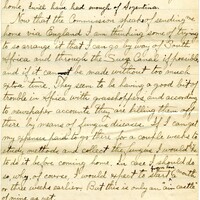 home, wife have had enough of Argentina.
Now that the Commission speaks of sending me
home via England I am thinking some of trying
to so arrange it that I can go by way of South
Africa and through the Suez Canal if possible
and if it can not be made without too much
extra time. They seem to be having a good bit of
trouble in Africa with grasshoppers and according
to newspaper accounts, they are killing them off
there by means of fungus disease. If I can get
my expenses paid to go there for a couple weeks to
study methods and collect the fungus I would like
to do it before coming home. In case I should do
so, why, of course, I would expect to start
or three weeks earlier. But this is only an air castle
of mine as yet.